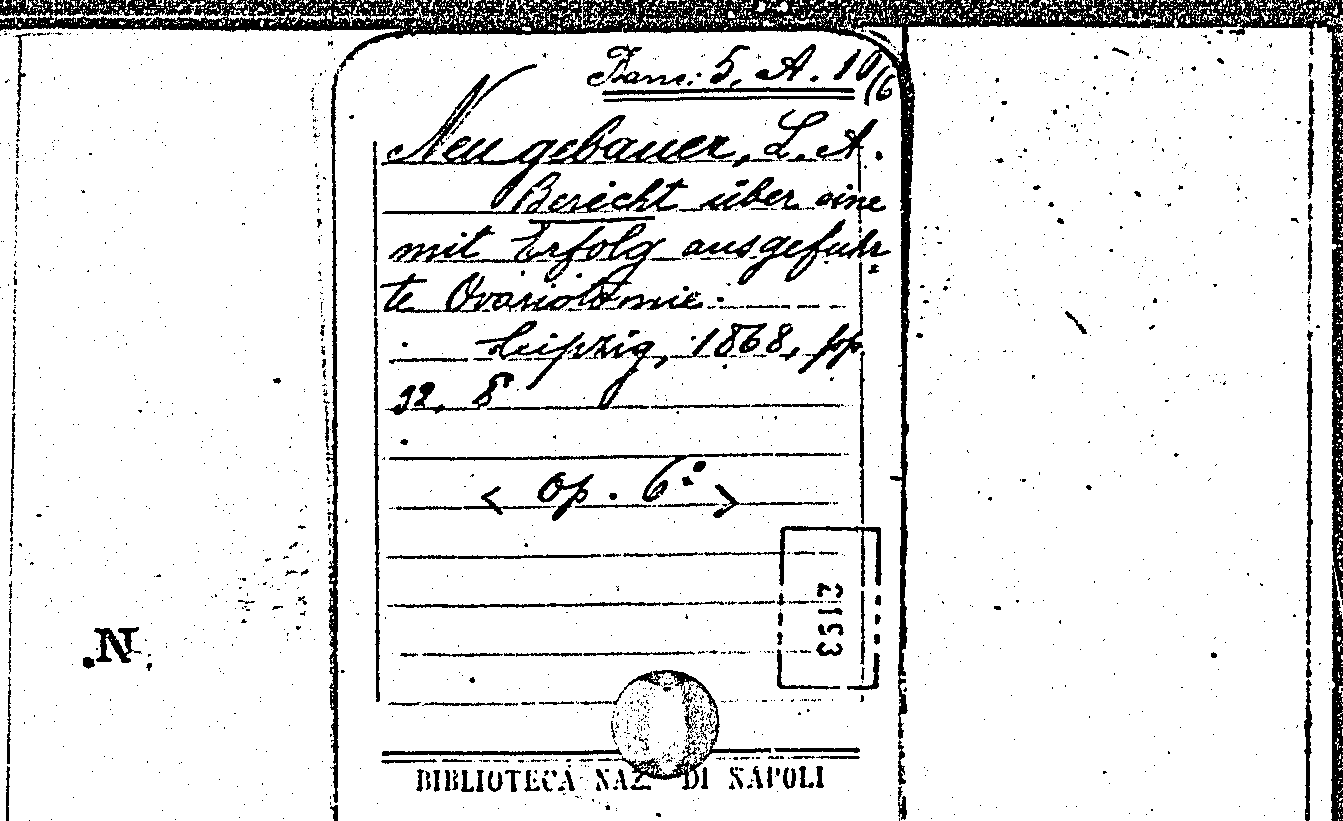 Banc. 5, A. 10/6
Neugebauer, L. A.
Bericht über eine
mit Erfolg ausgefuhr
te Ovariotomie.
Leipzig, 1868, pp
32. 8°
< op. 6° >
2153
BIBLIOTECA NAZ. DI NAPOLI
N.